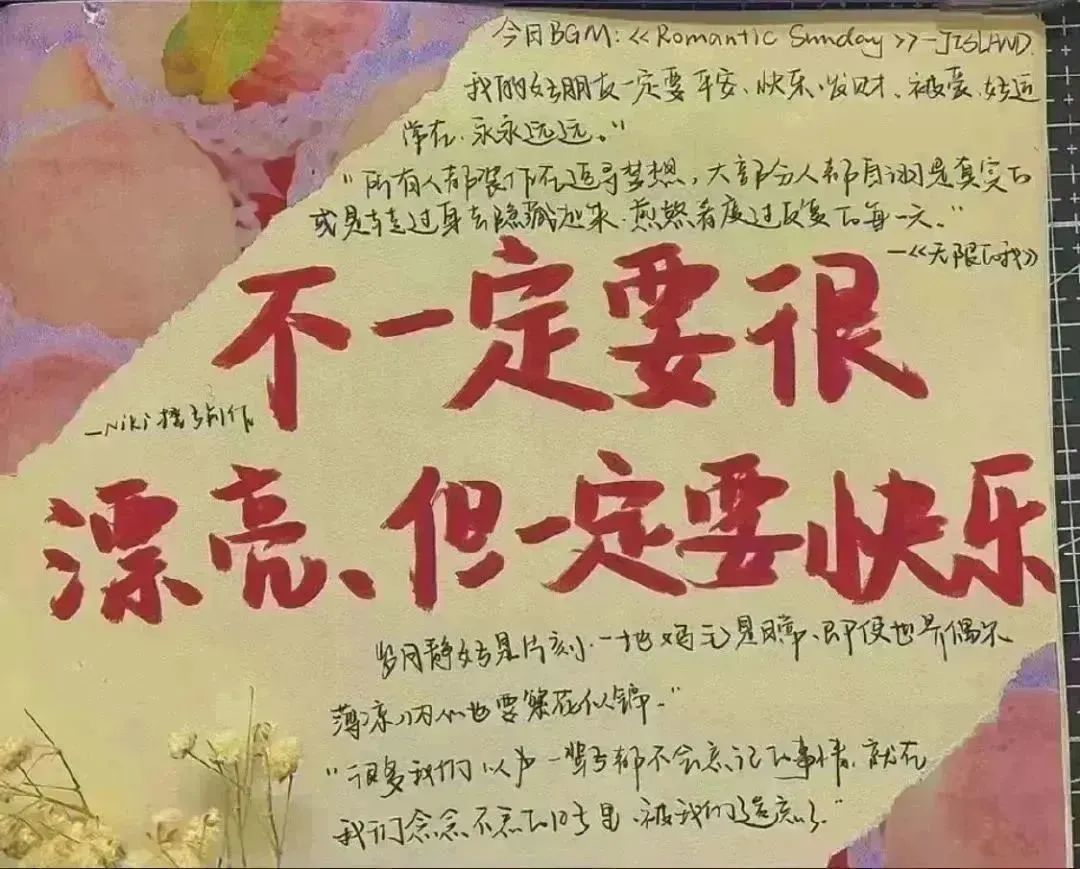 今日BGM:《Romantic Sunday》-JISLAND.
我的好朋友一定要平安、快乐、发财、被爱、好运
常在、永永远远。"
"所有人都装作在追寻梦想,大部分人都自诩是真实的
或是转过身去隐藏起来,煎熬着度过反复的每一天。"
—《无限的我》
不一定要很
—Niki 制作
漂亮、但一定要快乐
岁月静好是片刻、一地鸡毛是日常、即使世界偶尔
薄凉,内心也要繁花似锦。"
"很多我们以为一辈子都不会忘记的事情,就在
我们念念不忘的日子里,被我们遗忘了。"